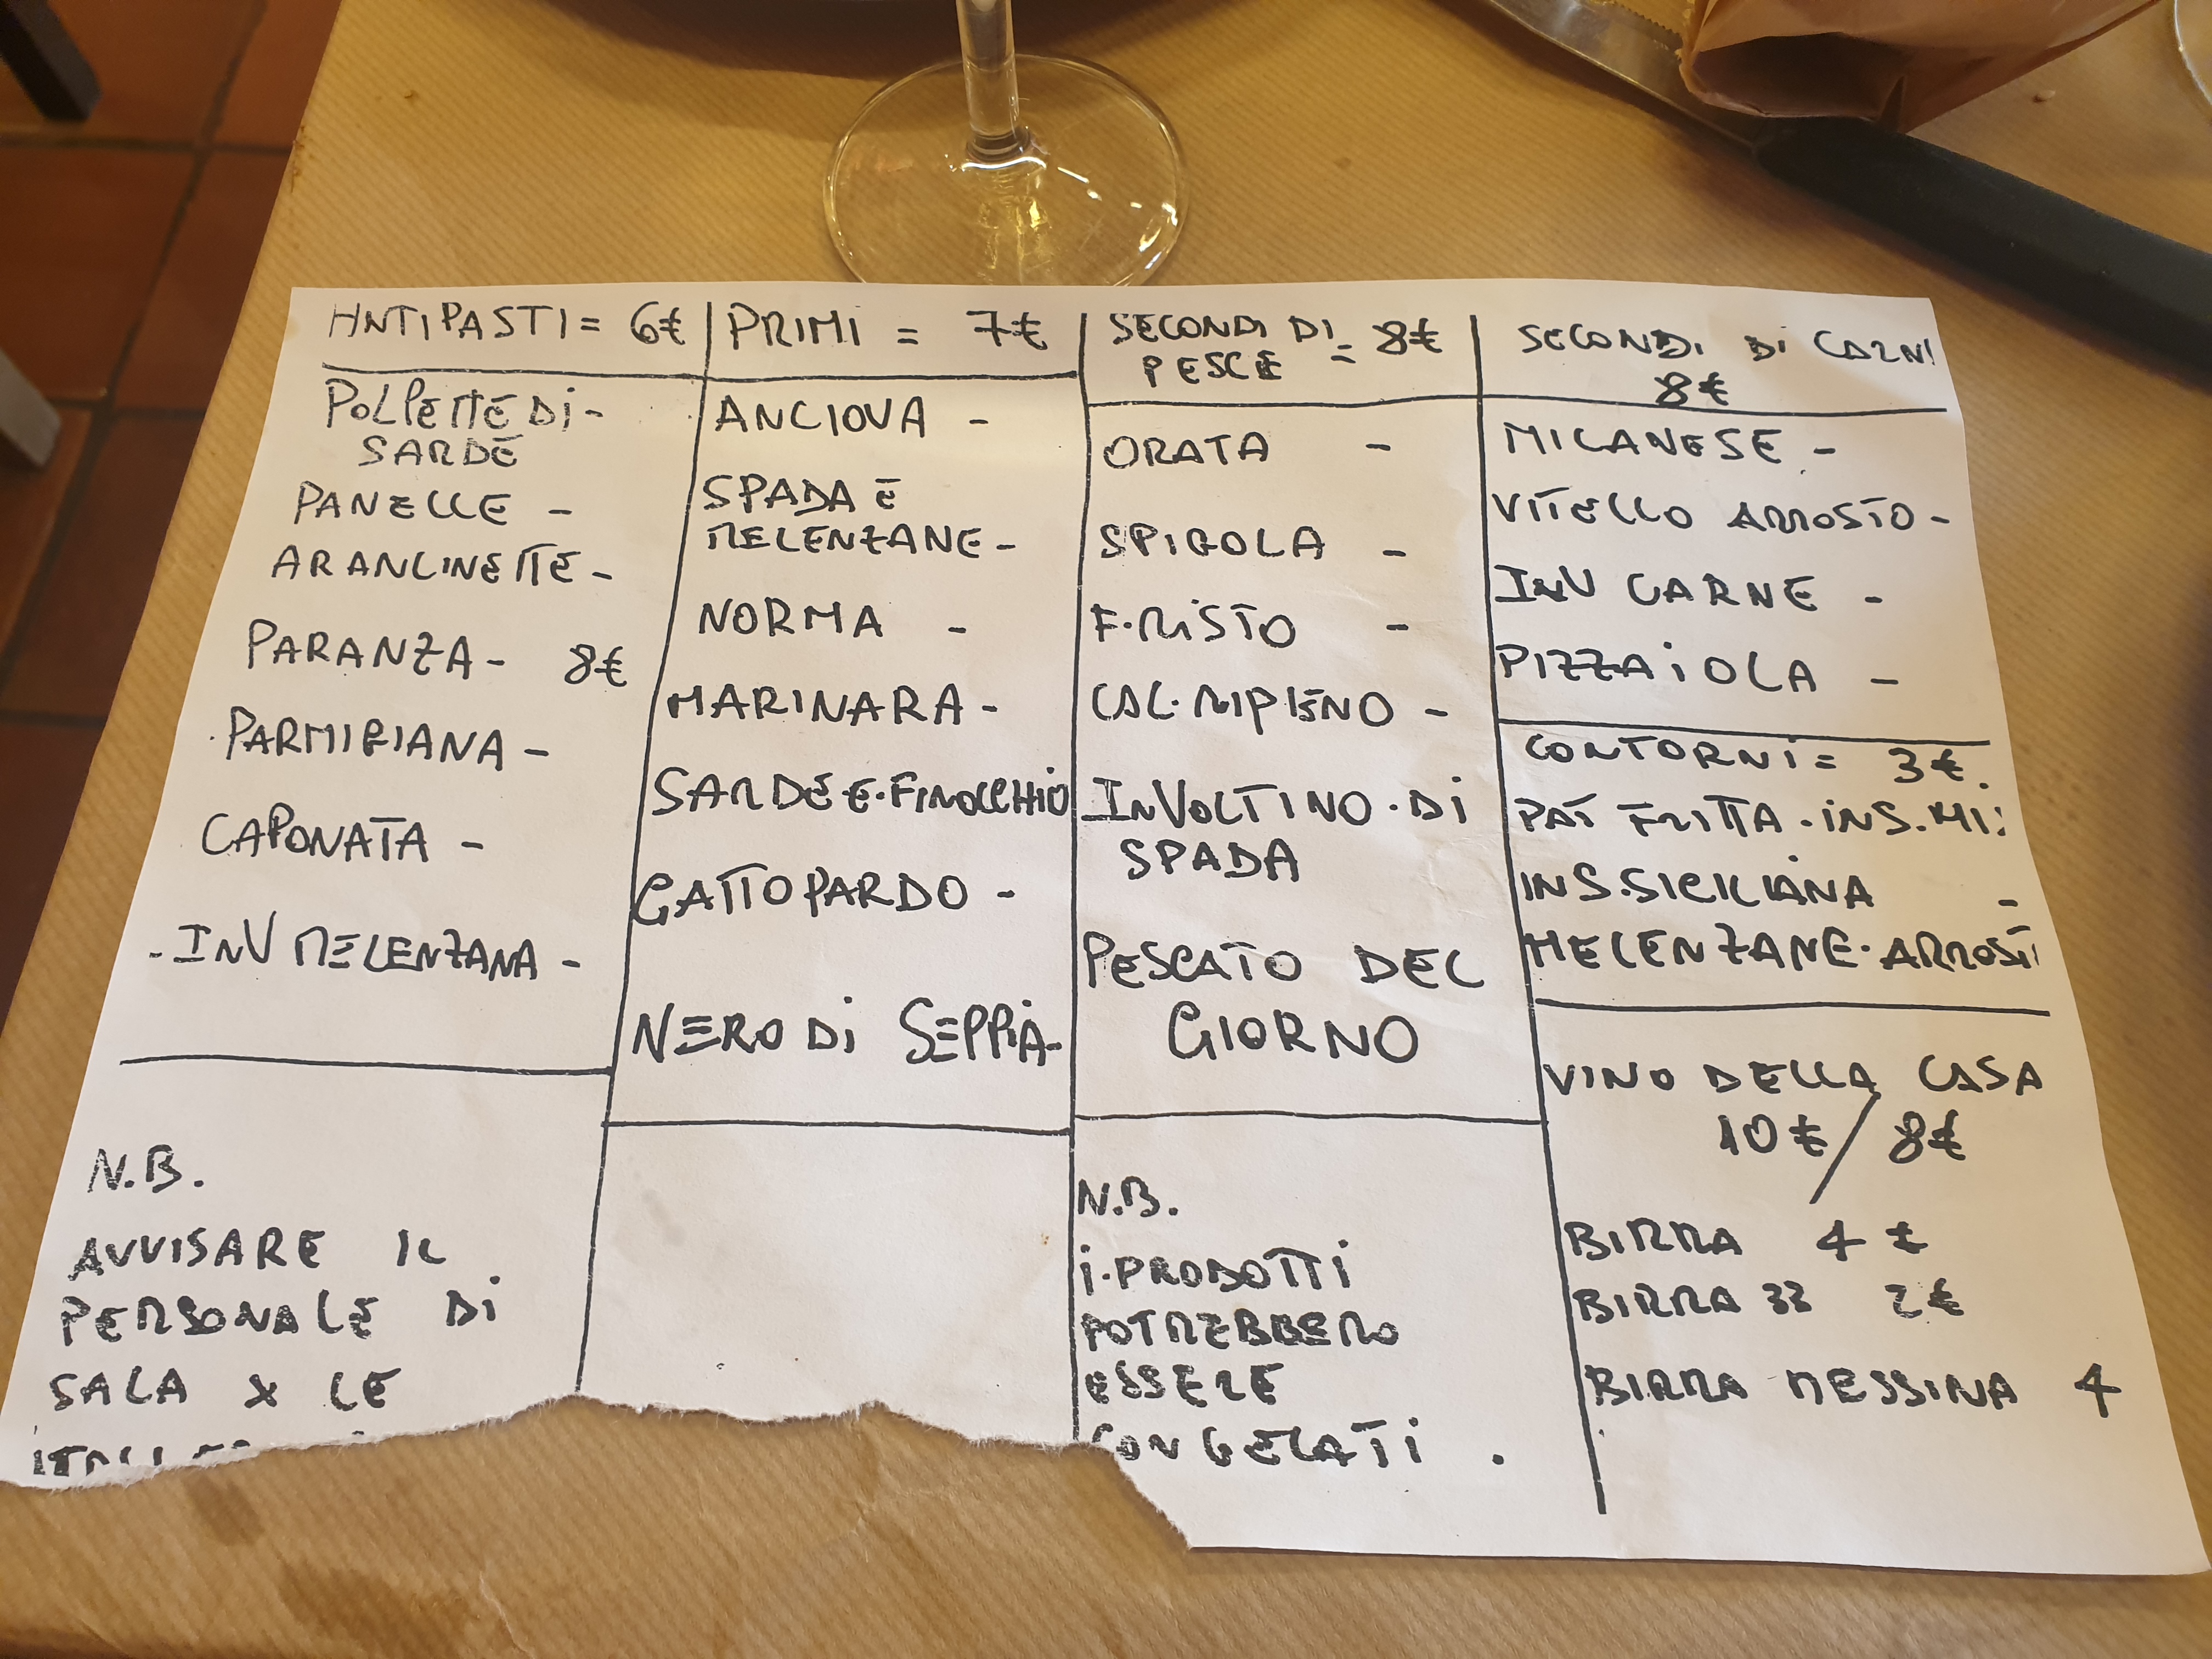 ANTIPASTI = 6€
POLPETTE DI -
SARDE
PANELLE -
ARANCINETTE -
PARANZA - 8€
PARMIGIANA -
CAPONATA -
- INV MELENZANA -
N.B.
AVVISARE IL
PERSONALE DI
SALA X LE
PRIMI = 7€
ANCIOVA -
SPADA E
MELENZANE -
NORMA -
MARINARA -
SARDE E. FINOCCHIO
GATTOPARDO -
NERO DI SEPPIA -
SECONDI DI
PESCE = 8€
ORATA -
SPIGOLA -
F. MISTO -
CAL. RIPIENO -
INVOLTINO. DI
SPADA
PESCATO DEL
GIORNO
N.B.
I. PRODOTTI
POTREBBERO
ESSERE
CONGELATI .
SECONDI DI CARNI
8€
MILANESE -
VITELLO ARROSTO -
INV CARNE -
PIZZAIOLA -
CONTORNI = 3€.
PAT FRITTA. INS. MI:
INS. SICILIANA -
MELENZANE. ARROSTI
VINO DELLA CASA
10€ / 8€
BIRRA 4€
BIRRA 33 2€
BIRRA MESSINA 4